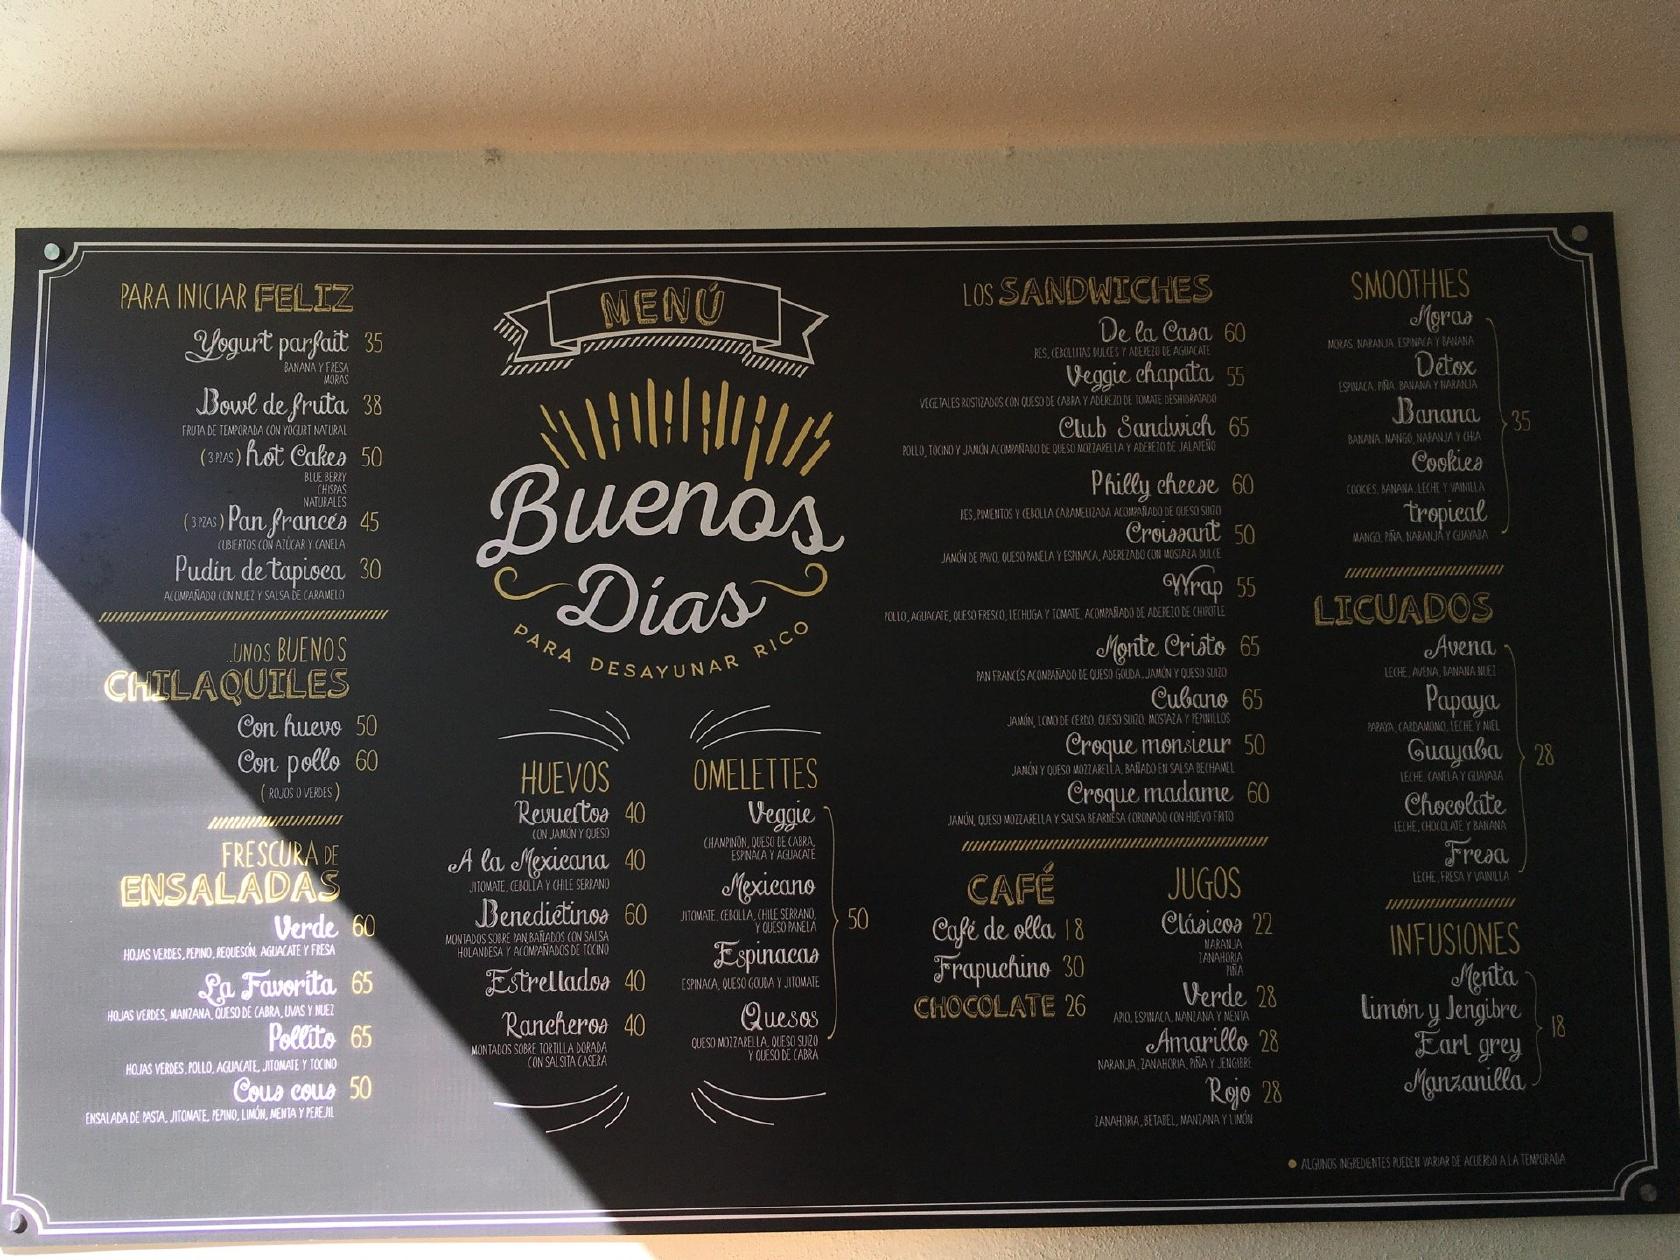 PARA INICIAR FELIZ
Yogurt parfait 35
BANANA Y FRESA
MORAS
Bowl de fruta 38
FRUTA DE TEMPORADA CON YOGURT NATURAL
(3 PZAS) hot Cakes 50
BLUE BERRY
CHISPAS
NATURALES
(3 PZAS) Pan francés 45
CUBIERTOS CON AZÚCAR Y CANELA
Pudín de tapioca 30
ACOMPAÑADO CON NUEZ Y SALSA DE CARAMELO
..UNOS BUENOS
CHILAQUILES
Con huevo 50
Con pollo 60
(ROJOS O VERDES)
FRESCURA DE
ENSALADAS
Verde 60
HOJAS VERDES, PEPINO, REQUESÓN, AGUACATE Y FRESA
La Favorita 65
HOJAS VERDES, MANZANA, QUESO DE CABRA, UVAS Y NUEZ
Pollito 65
HOJAS VERDES, POLLO, AGUACATE, JITOMATE Y TOCINO
Cous cous 50
ENSALADA DE PASTA, JITOMATE, PEPINO, LIMÓN, MENTA Y PEREJIL
MENÚ
Buenos
Días
PARA DESAYUNAR RICO
HUEVOS
Revueltos 40
CON JAMÓN Y QUESO
A la Mexicana 40
JITOMATE, CEBOLLA Y CHILE SERRANO
Benedictinos 60
MONTADOS SOBRE PAN, BAÑADOS CON SALSA
HOLANDESA Y ACOMPAÑADOS DE TOCINO
Estrellados 40
Rancheros 40
MONTADOS SOBRE TORTILLA DORADA
CON SALSITA CASERA
OMELETTES
Veggie
CHAMPIÑÓN, QUESO DE CABRA,
ESPINACA Y AGUACATE
Mexicano
JITOMATE, CEBOLLA, CHILE SERRANO,
Y QUESO PANELA
50
Espinacas
ESPINACA, QUESO GOUDA Y JITOMATE
Quesos
QUESO MOZZARELLA, QUESO SUIZO
Y QUESO DE CABRA
LOS SANDWICHES
De la Casa 60
RES, CEBOLLITAS DULCES Y ADEREZO DE AGUACATE
Veggie chapata 55
VEGETALES ROSTIZADOS CON QUESO DE CABRA Y ADEREZO DE TOMATE DESHIDRATADO
Club Sandwich 65
POLLO, TOCINO Y JAMÓN ACOMPAÑADO DE QUESO MOZZARELLA Y ADEREZO DE JALAPEÑO
Philly cheese 60
RES, PIMIENTOS Y CEBOLLA CARAMELIZADA ACOMPAÑADO DE QUESO SUIZO
Croissant 50
JAMÓN DE PAVO, QUESO PANELA Y ESPINACA, ADEREZADO CON MOSTAZA DULCE
Wrap 55
POLLO, AGUACATE, QUESO FRESCO, LECHUGA Y TOMATE, ACOMPAÑADO DE ADEREZO DE CHIPOTLE
Monte Cristo 65
PAN FRANCÉS ACOMPAÑADO DE QUESO GOUDA, JAMÓN Y QUESO SUIZO
Cubano 65
JAMÓN, LOMO DE CERDO, QUESO SUIZO, MOSTAZA Y PEPINILLOS
Croque monsieur 50
JAMÓN Y QUESO MOZZARELLA, BAÑADO EN SALSA BECHAMEL
Croque madame 60
JAMÓN, QUESO MOZZARELLA Y SALSA BEARNESA CORONADO CON HUEVO FRITO
CAFÉ
Café de olla 18
Frapuchino 30
CHOCOLATE 26
JUGOS
Clásicos 22
NARANJA
ZANAHORIA
PIÑA
Verde 28
APIO, ESPINACA, MANZANA Y MENTA
Amarillo 28
NARANJA, ZANAHORIA, PIÑA Y JENGIBRE
Rojo 28
ZANAHORIA, BETABEL, MANZANA Y LIMÓN
SMOOTHIES
Moras
MORAS, NARANJA, ESPINACA Y BANANA
Detox
ESPINACA, PIÑA, BANANA Y NARANJA
Banana
35
BANANA, MANGO, NARANJA Y CHIA
Cookies
COOKIES, BANANA, LECHE Y VAINILLA
tropical
MANGO, PIÑA, NARANJA Y GUAYABA
LICUADOS
Avena
LECHE, AVENA, BANANA NUEZ
Papaya
PAPAYA, CARDAMOMO, LECHE Y MIEL
Guayaba
28
LECHE, CANELA Y GUAYABA
Chocolate
LECHE, CHOCOLATE Y BANANA
Fresa
LECHE, FRESA Y VAINILLA
INFUSIONES
Menta
limón y Jengibre
18
Earl grey
Manzanilla
ALGUNOS INGREDIENTES PUEDEN VARIAR DE ACUERDO A LA TEMPORADA